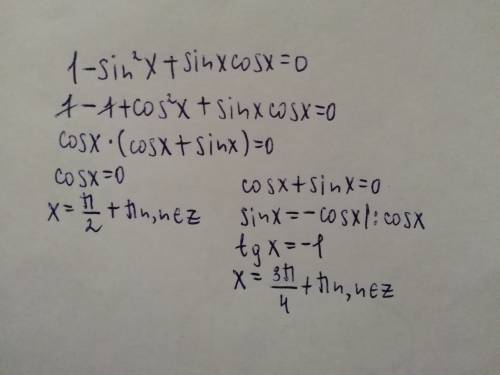 1-sin²x+sinxcosx=0
1-1+cos²x+sinxcosx=0
cosx·(cosx+sinx)=0
cosx=0
x=π/2+πn,n∈z
cosx+sinx=0
sinx=-cosx|:cosx
tgx=-1
x=3π/4+πn,n∈z